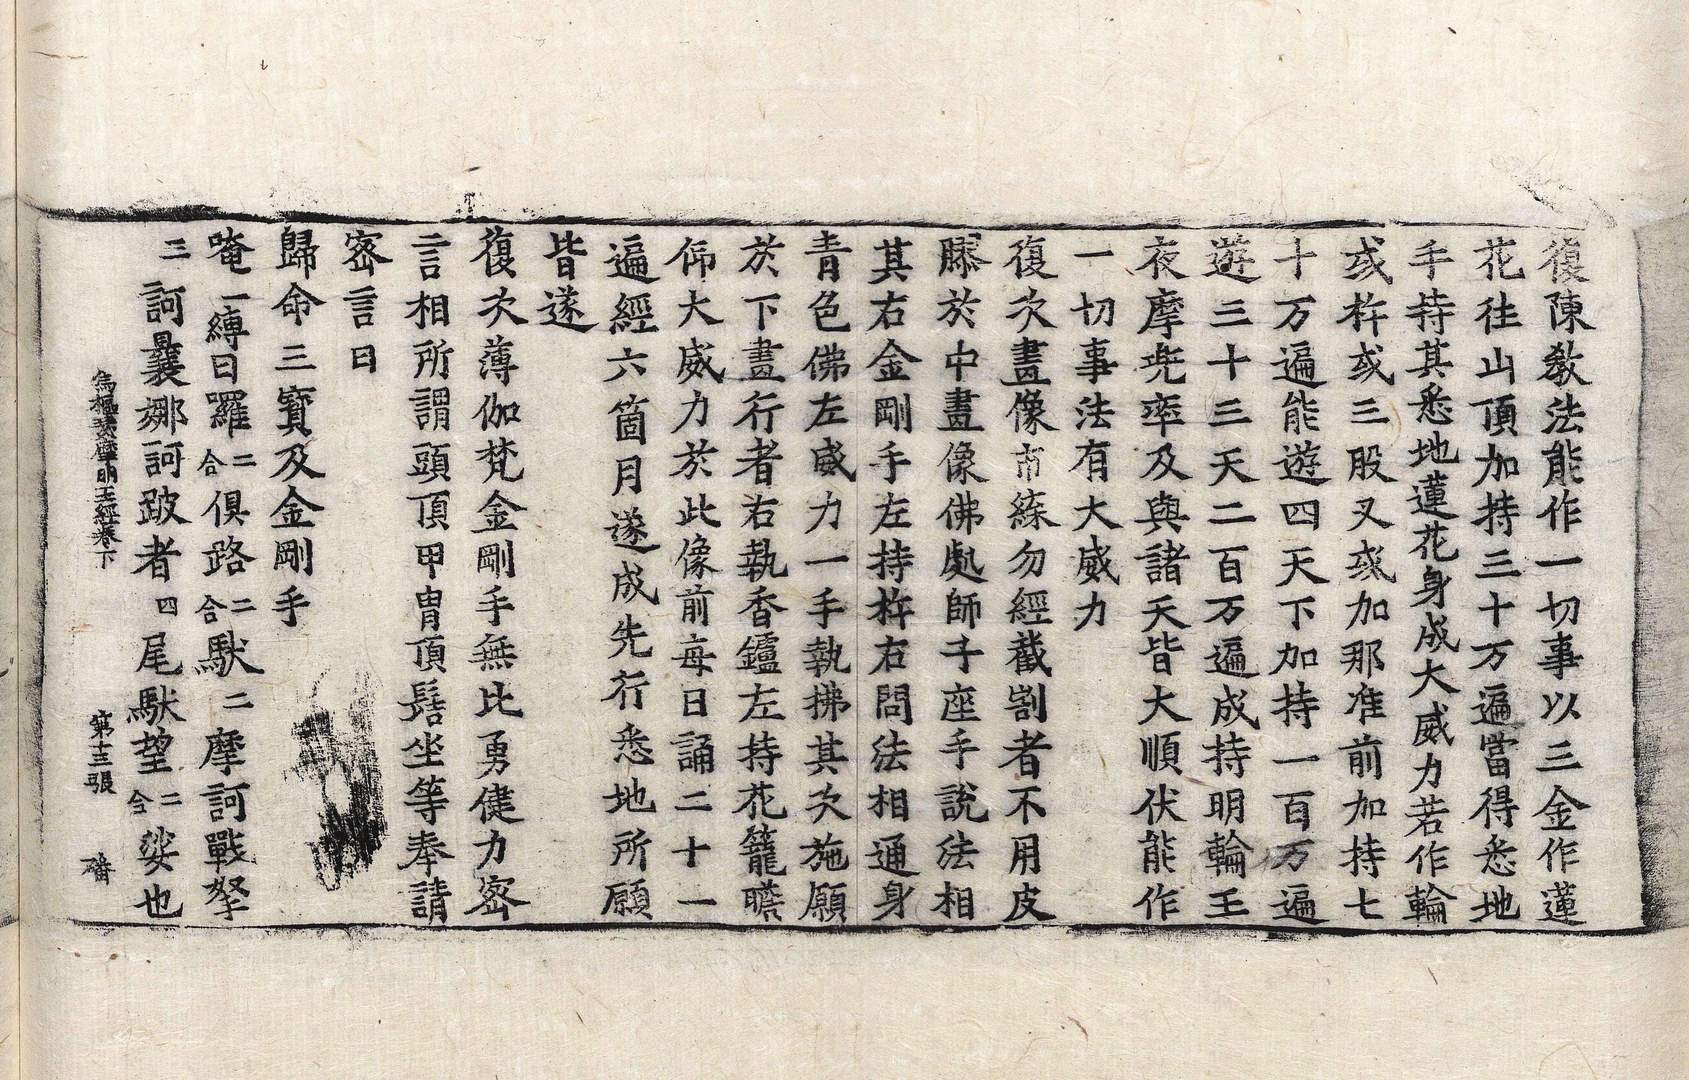 復陳教法能作一切事以三金作蓮
花往山頂加持三十万遍當得悉地
手持其悉地蓮花身成大威力若作輪
或杵或三股叉或加那准前加持七
十万遍能遊四天下加持一百万遍
遊三十三天二百万遍成持明輪王
夜摩兠率及與諸天皆大順伏能作
一切事法有大威力
復次畫像市𦀟勿經截割者不用皮
膠於中畫像佛處師子座手說法相
其右金剛手左持杵右問法相通身
青色佛左威力一手執拂其次施願
於下畫行者右執香鑪左持花籠瞻
仰大威力於此像前每日誦二十一
遍經六箇月遂成先行悉地所願
皆遂
復次薄伽梵金剛手無比勇健力密
言相所謂頭頂甲冑頂髻坐等奉請
密言曰
歸命三寶及金剛手
唵一縛曰羅二合俱路二合馱二摩訶戰拏
三訶曩娜訶跛者四尾馱望二合娑也
烏樞瑟摩明王經卷下 第十三張